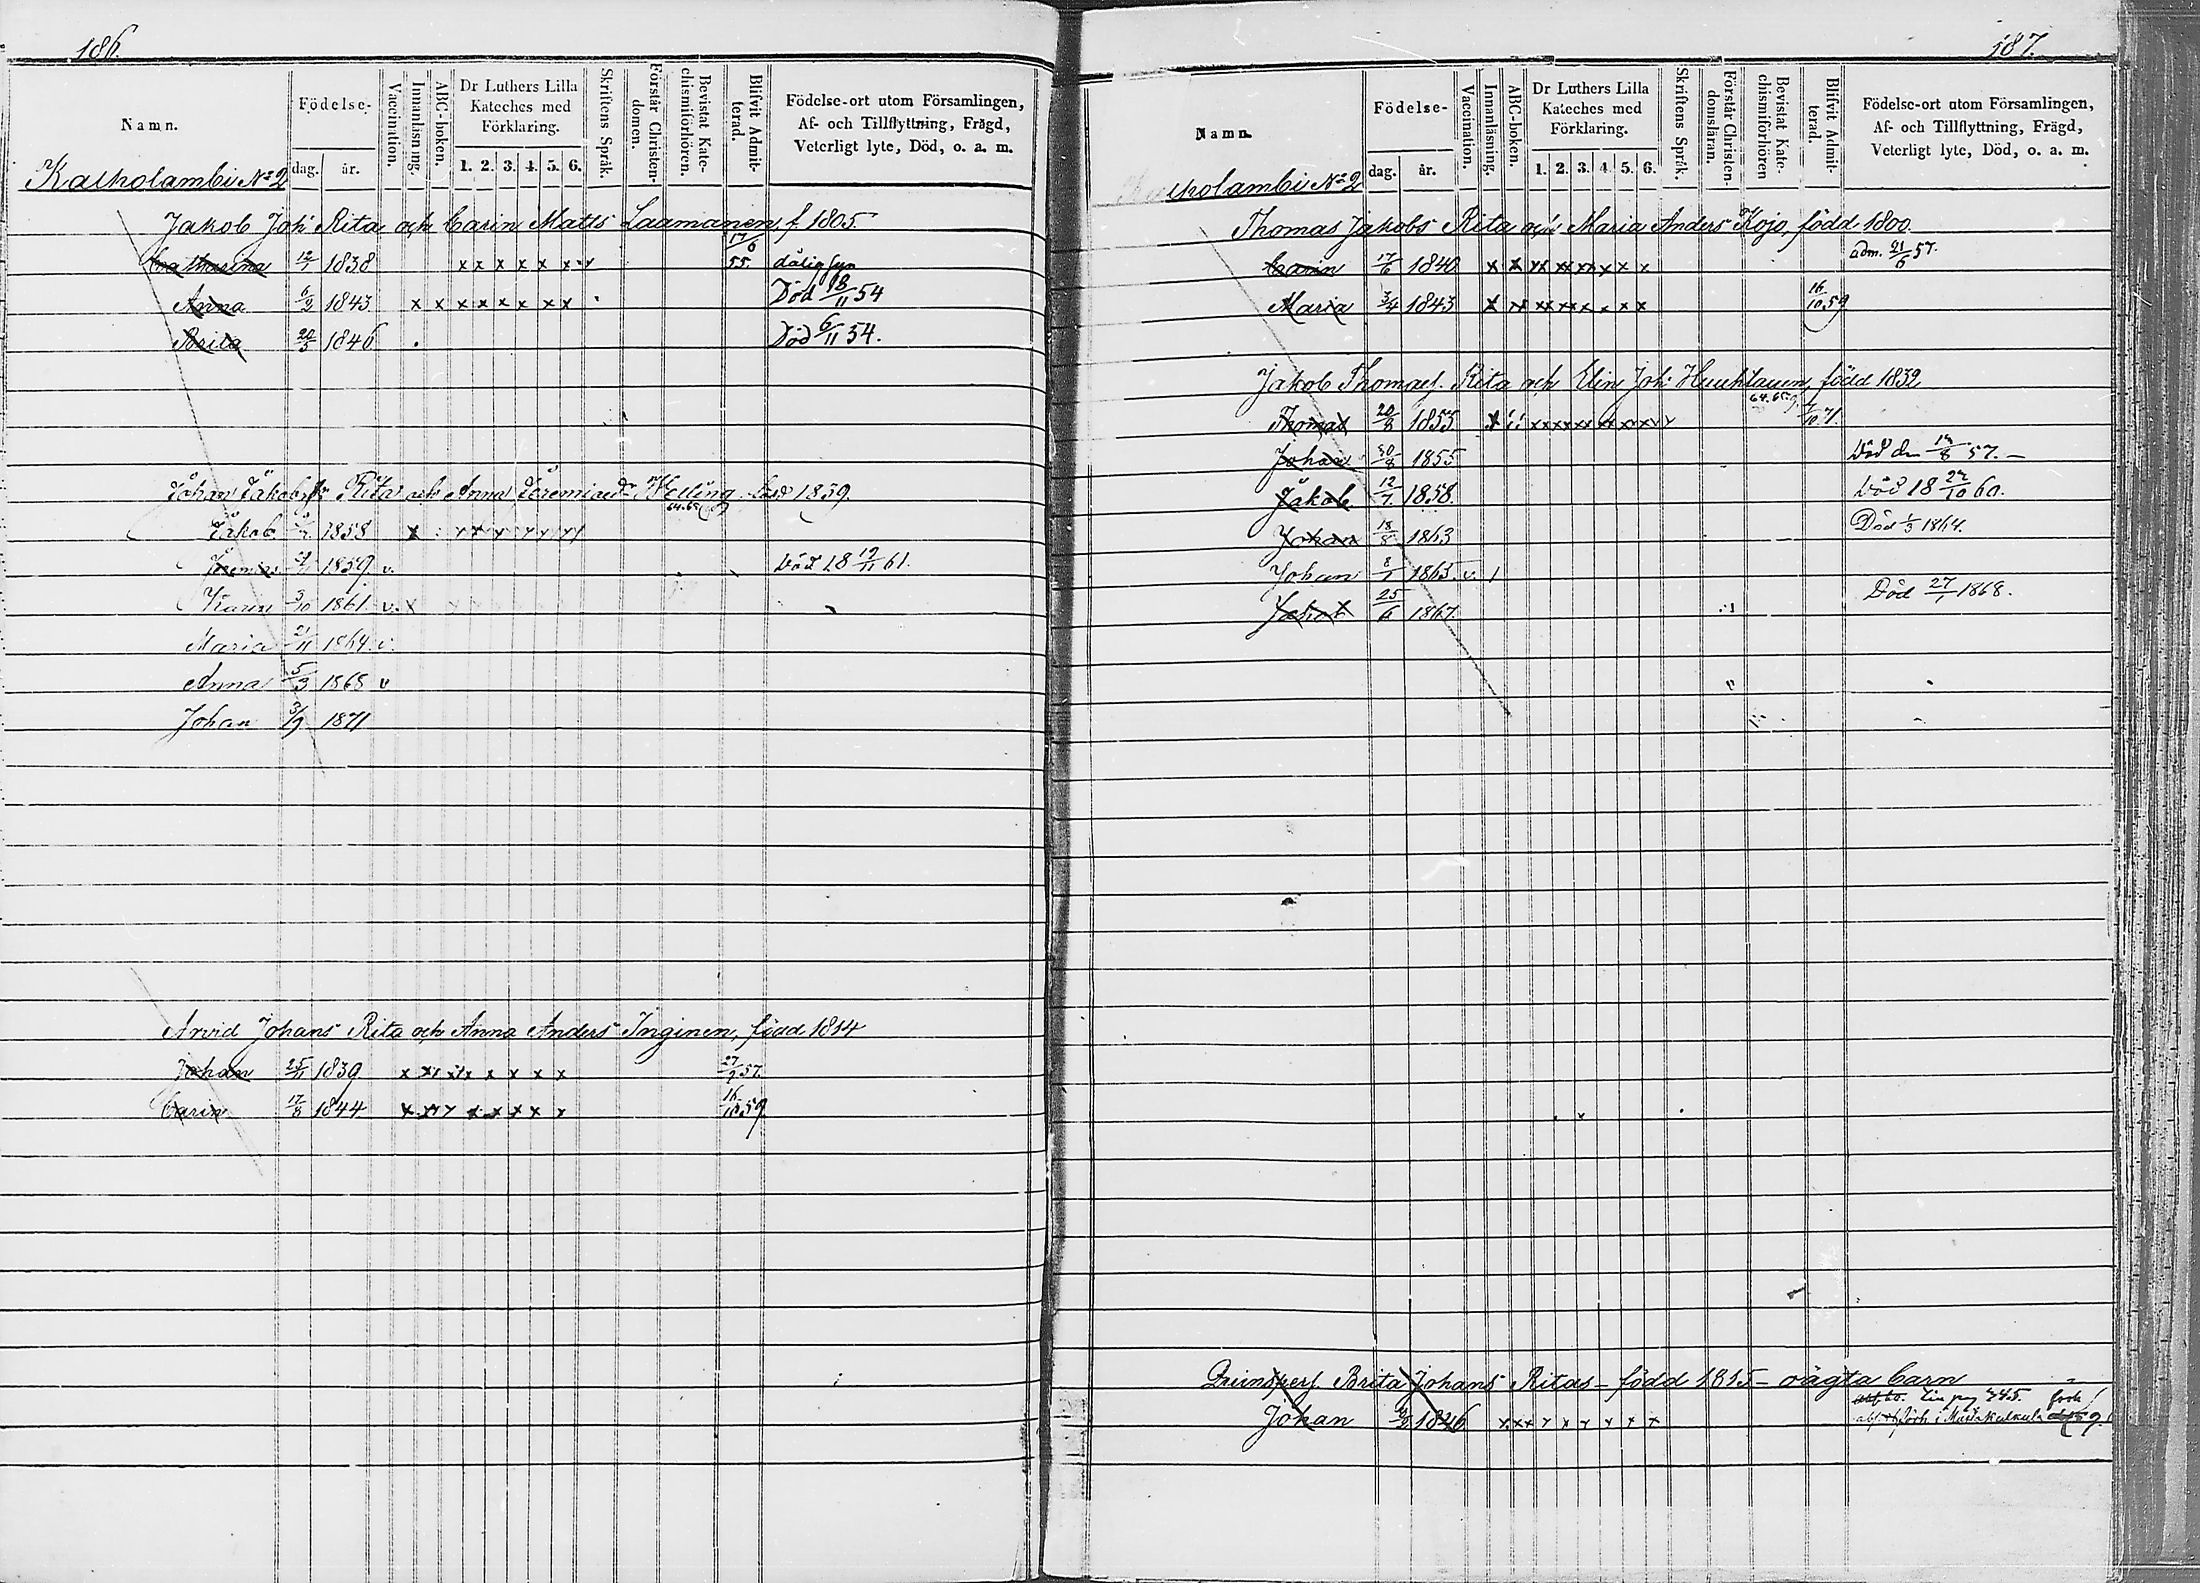 186.
Namn.
Födelse-
dag. år.
Vaccination.
Innanläsning.
ABC-boken.
Dr Luthers Lilla
Kateches med
Förklaring.
1. 2. 3. 4. 5. 6.
Skriftens Språk.
Förstår Christen-
domen.
Bevistat Kate-
chismiförhören.
Blifvit Admit-
terad.
Födelse-ort utom Församlingen,
Af- och Tillflyttning, Frägd,
Veterligt lyte, Död, o. a. m.
No 2
Jakob Joh: Rita och Carin Matts Laamanen, f. 1805.
Catharina 12/1 1838 x x x x x x 17/6 55. dålig syn
Anna 6/2 1843 x x x x x x x x Död 18/11 54
Brita 20/5 1846 Död 6/11 54.
Johan Jakobs Rita och Anna Jeremiaed: 1839.
64.65
Jakob 1858 x
Jeremias 1859 v. Död 18 19/11 61.
Karin 3/10 1861 v. x
Maria 21/11 1864 v.
Anna 5/3 1868 v
Johan 3/9 1871
Arvid Johans Rita och Anna Anders Inginen, född 1814
Johan 25/11 1839 x x x x x x x x 27/9 57.
Carin 17/8 1844 x x x x x x x x 16/10 59
187.
Namn.
Födelse-
dag. år.
Vaccination.
Innanläsning.
ABC-boken.
Dr Luthers Lilla
Kateches med
Förklaring.
1. 2. 3. 4. 5. 6.
Skriftens Språk.
Förstår Christen-
domsläran.
Bevistat Kate-
chismiförhören
Blifvit Admit-
terad.
Födelse-ort utom Församlingen,
Af- och Tillflyttning, Frägd,
Veterligt lyte, Död, o. a. m.
No 2
Thomas Jakobs Rita och Maria Anders Kojo, född 1800.
Carin 17/6 1840 x x xx xx x x x x adm. 21/6 57.
Maria 3/4 1843 x x xx xx x x x x 16/10 59
Jakob Thomæs. Rita och Elin Joh: född 1832
64.65
Thomas 20/8 1853 x 10 71.
Johan 30/8 1855 Död den 19/8 57. –
Jakob 12/7 1858. Död 18 22/10 60.
Johan 18/8 1863 Död 1/3 1864.
Johan 8/1 1865 v. 1
Jakob 25/6 1867. Död 27/1 1868.
Brita Johans Ritas – född 1815 – oägta barn
Johan 1846 x x x x x x x x x
pag 245.